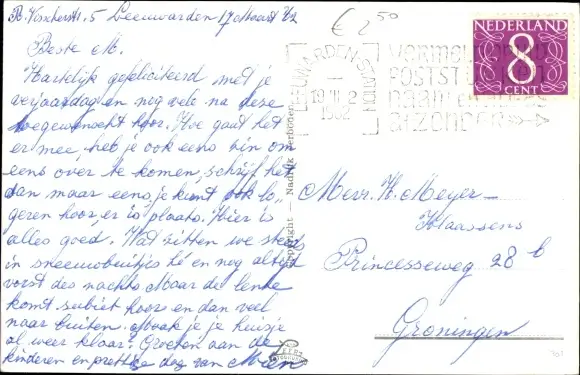 R. Visscherstr. 5 Leeuwarden 17 Maart '62
Beste M.
Hartelijk gefeliciteerd met je
verjaardag en nog vele na deze
toegewenscht hoor. Hoe gaat het
er mee, heb je ook eens zin om
eens over te komen, schrijf het
dan maar eens, je kunt ook lo-
geren hoor, er is plaats. Hier is
alles goed. Wat zitten we steeds
in sneeuwbuitjes hé en nog altijd
vorst des nachts. Maar de lente
komt subiet hoor en dan veel
naar buiten. Maak je je huisje
al weer klaar? Groeten aan de
kinderen en prettige dag van Mien
€ 2 50
LEEUWARDEN-STATION
19 III 2
1962
vermeld op uw
POSTSTUKKEN
naam en
afzender
NEDERLAND
8
CENT
Copyright — Nadruk verboden
Mevr. H. Meyer-
Klaassens
Princesseweg 28 b
Groningen